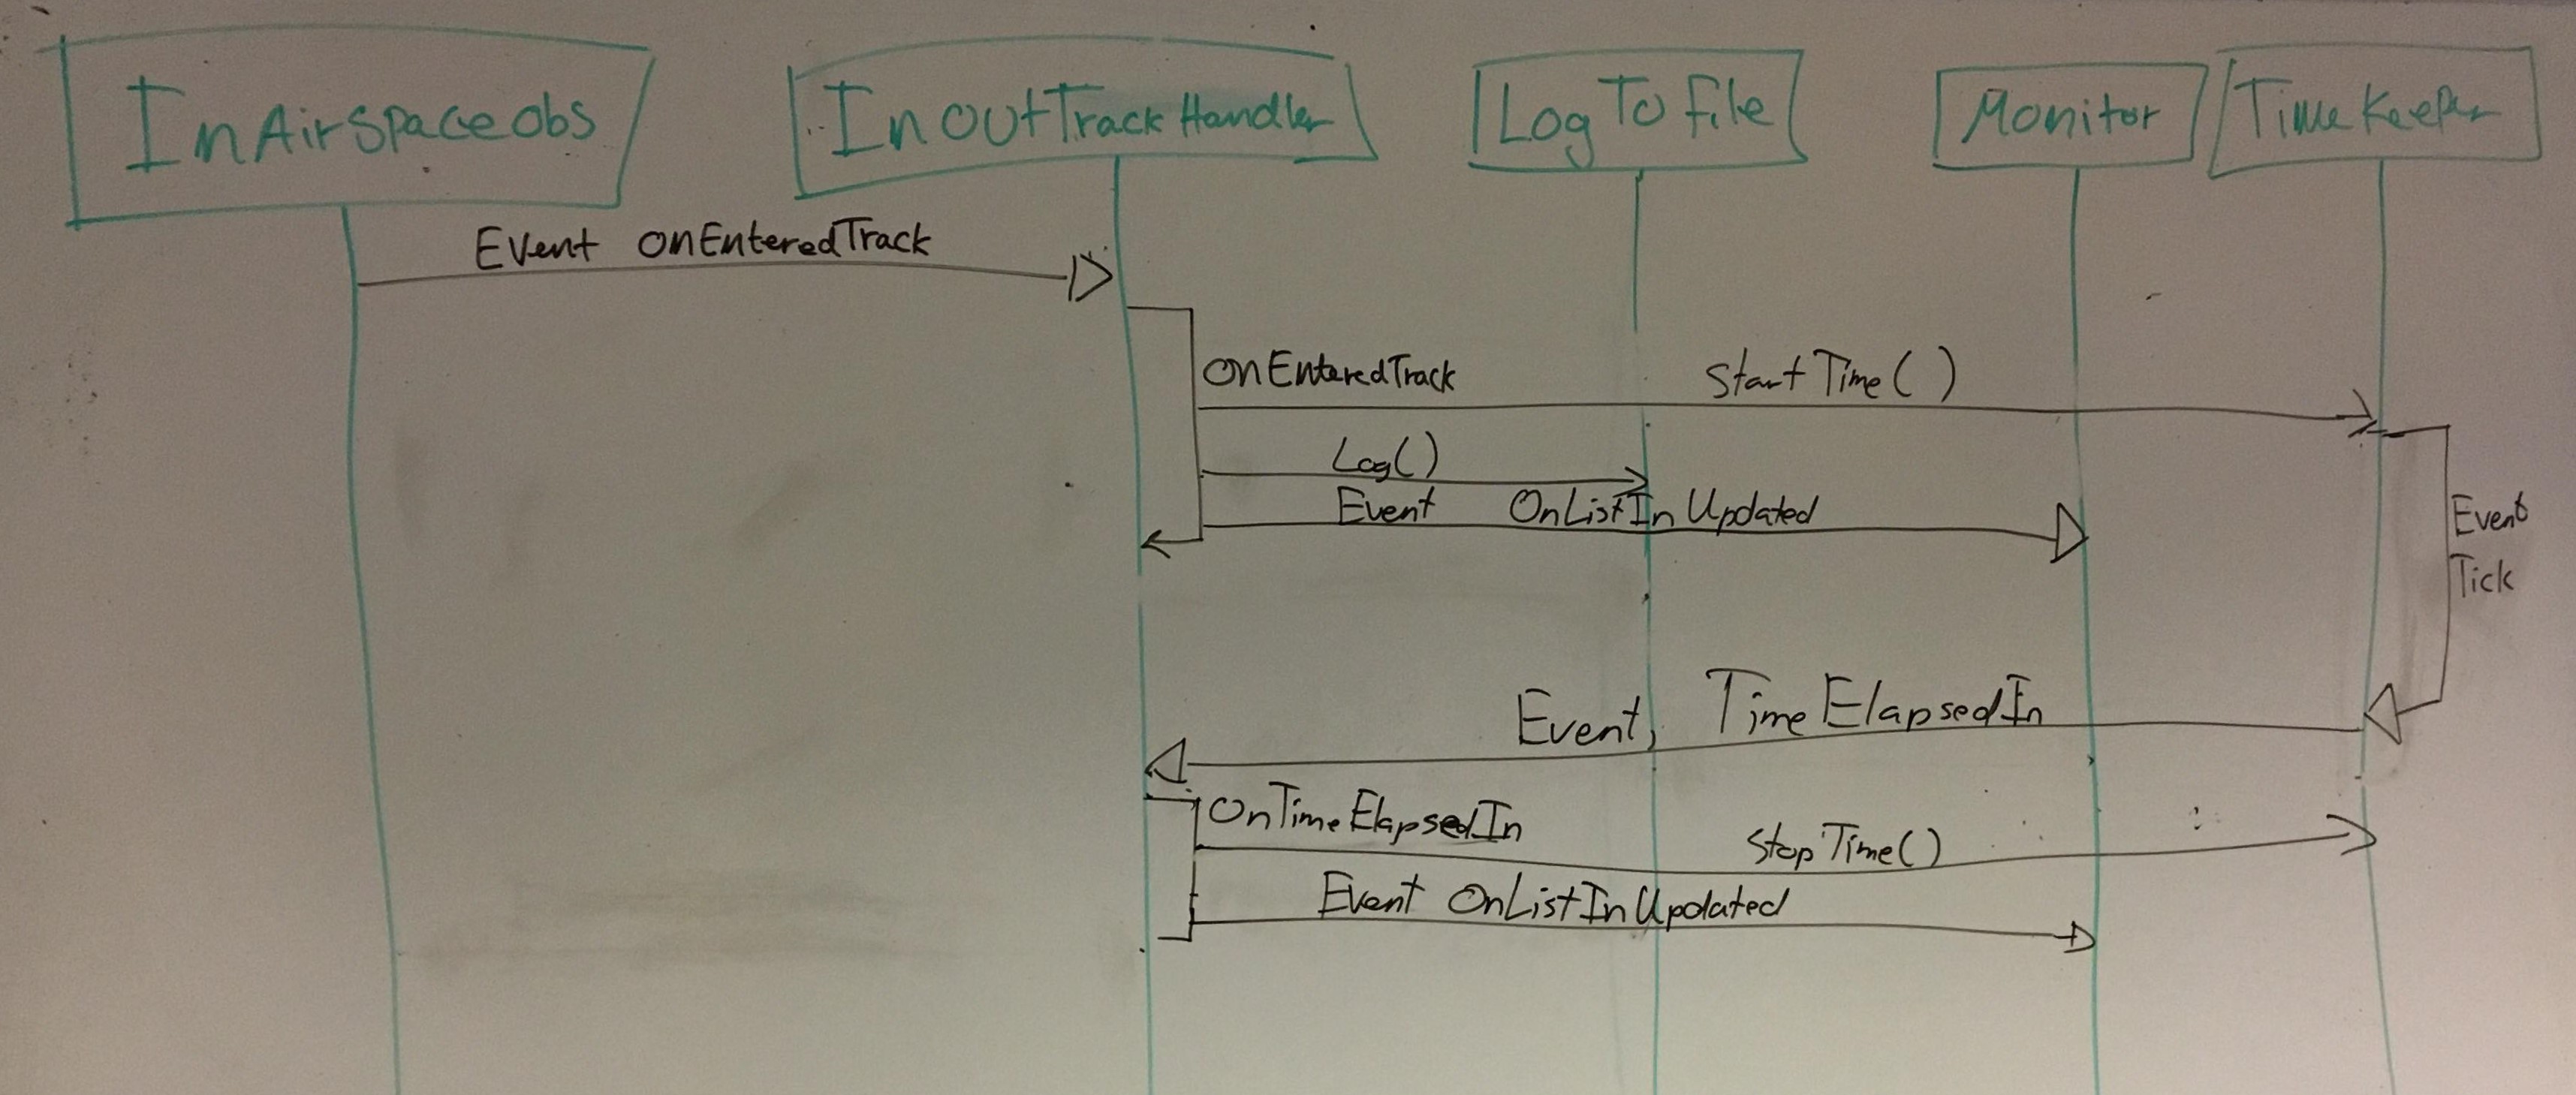 InAirSpaceobs
InOutTrackHandler
LogToFile
Monitor
TimeKeeper
Event onEnteredTrack
onEnteredTrack StartTime()
Log()
Event OnListInUpdated
Event
Tick
Event, TimeElapsedIn
OnTimeElapsedIn
StopTime()
Event OnListInUpdated